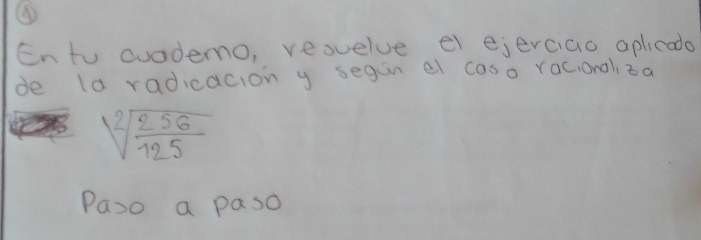 ④
En tu cuaderno, resuelve el ejercicio aplicado
de la radicación y según el caso racionaliza
²√256/125
Paso a paso